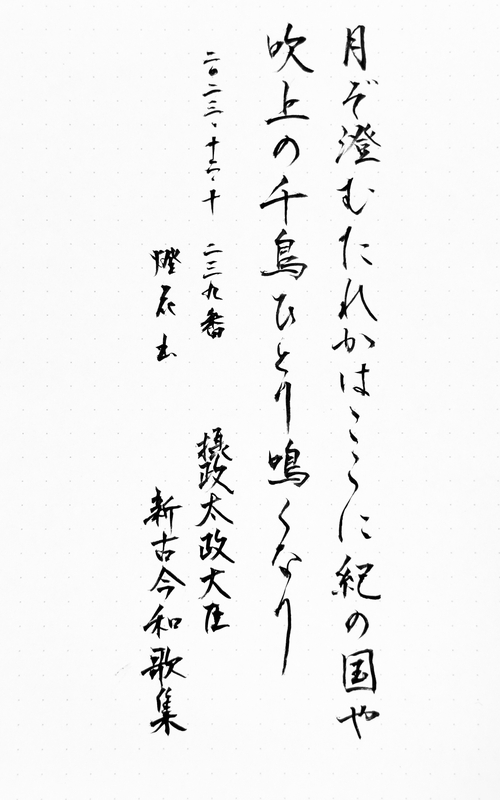 月ぞ澄むたれかはここに紀の国や
吹上の千鳥ひとり鳴くなり
二〇二三、十二、十 二三九番
摂政太政大臣
新古今和歌集